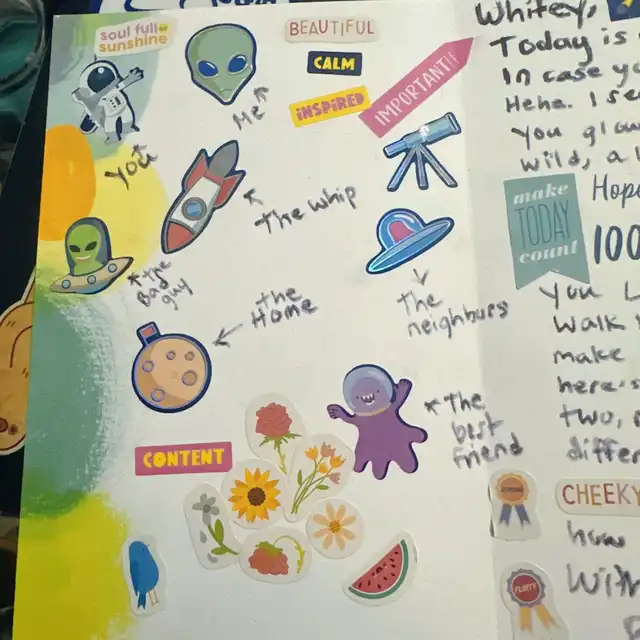 soul full of
sunshine
BEAUTIFUL
CALM
INSPIRED
IMPORTANT!!
Me
You
The Whip
the
Bad
guy
the
Home
The
neighburs
The
best
friend
CONTENT
Whitey,
Today is
In case yo
Hehe. I se
you
wild, a
make
TODAY
count
Hop
100
You
Walk
make
here
two,
differ
CHEEKY
how
FLIRTY
With